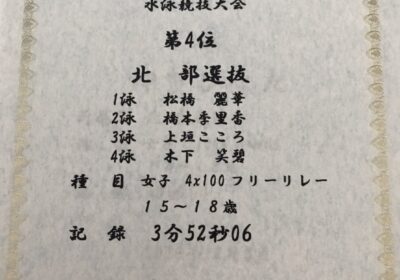 水泳競技大会
第4位
北 部選抜
1泳 松橋 麗華
2泳 橋本季里香
3泳 上垣こころ
4泳 木下 笑碧
種 目 女子 4x100フリーリレー
15～18歳
記 録 3分52秒06